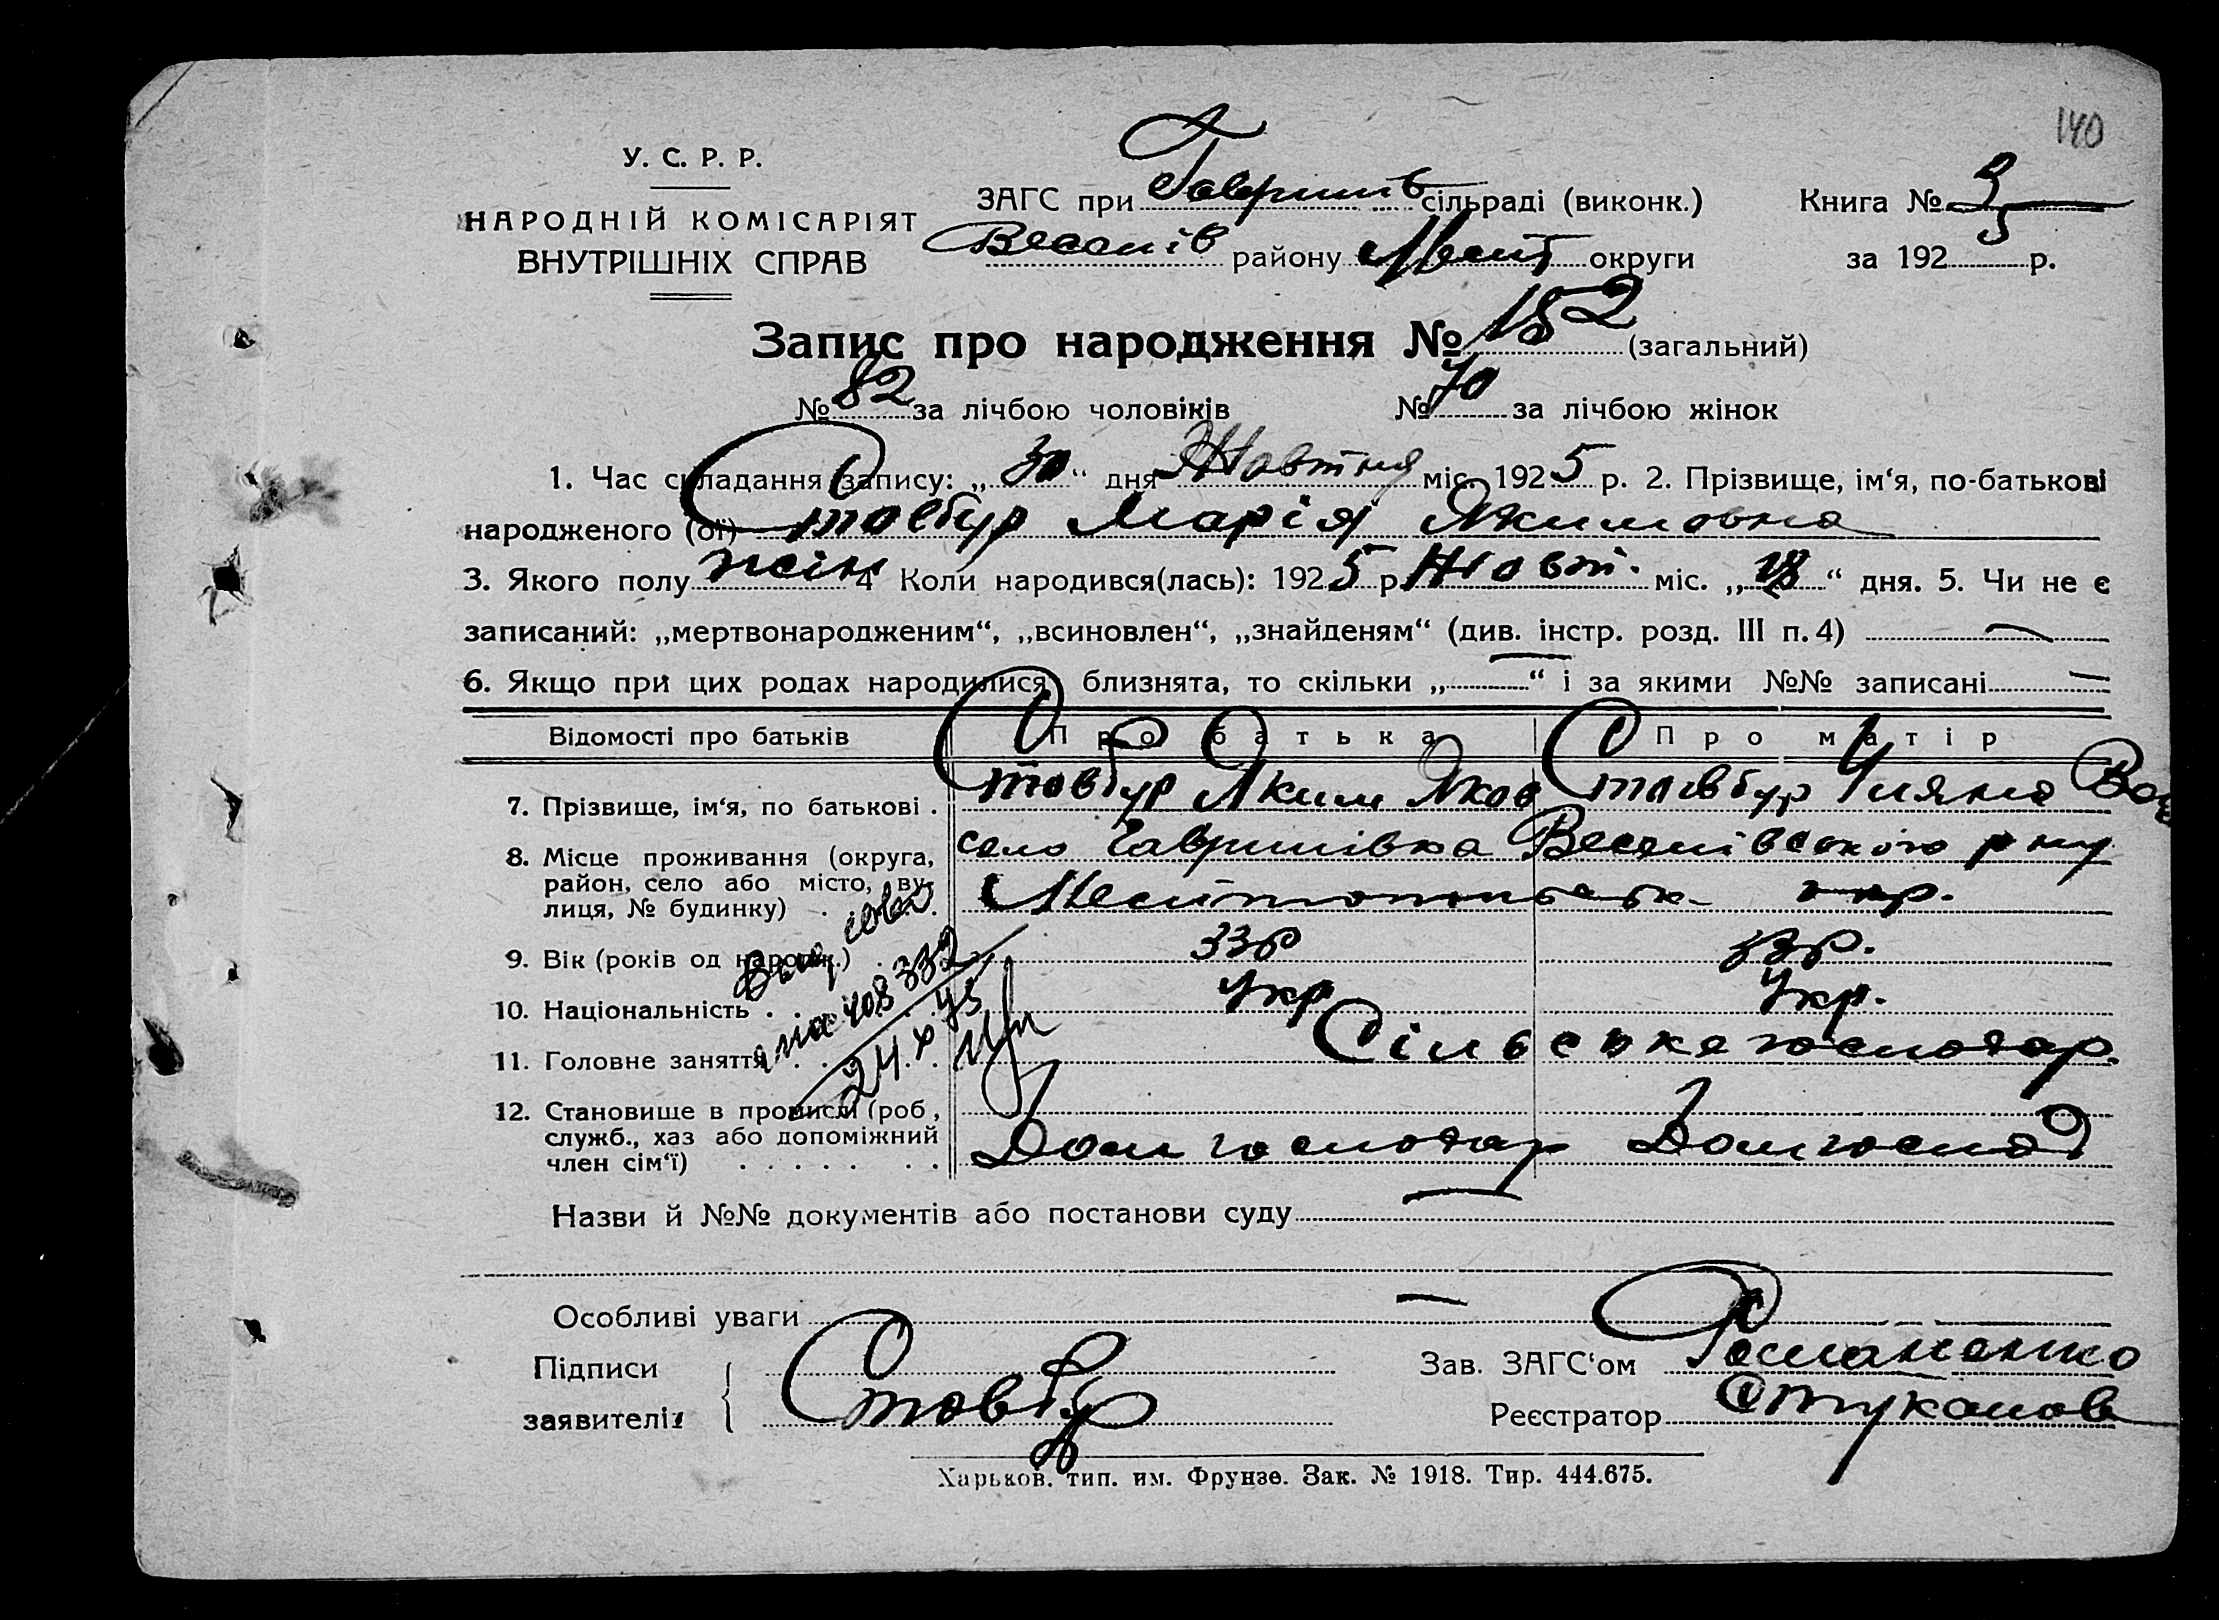 140
У. С. Р. Р.
НАРОДНІЙ КОМІСАРІЯТ
ВНУТРІШНІХ СПРАВ
ЗАГС при Гавришів сільраді (виконк.)
Веселів району Меліт округи
Книга № 3
за 1925 р.
Запис про народження № 152 (загальний)
№ 82 за лічбою чоловіків № 70 за лічбою жінок
1. Час складання запису: „30“ дня Жовтня міс. 1925 р. 2. Прізвище, ім‘я, по-батькові
народженого (ої) Стовбур Марія Якимовна
3. Якого полу жін 4 Коли народився(лась): 1925 р. Жовт. міс. „ “ дня. 5. Чи не є
записаний: „мертвонародженим“, „всиновлен“, „знайденям“ (див. інстр. розд. III п. 4) —
6. Якщо при цих родах народилися близнята, то скільки „—“ і за якими №№ записані —
Відомості про батьків Про батька Про матір
7. Прізвище, ім‘я, по батькові . Стовбур Яким Яков Стовбур Уляна
8. Місце проживання (округа, село Гавришівка Веселівського р ну
район, село або місто, ву-
лиця, № будинку) . . . Мелітопольськ окр.
9. Вік (років од народж.) . 33р 33р.
10. Національність . . Укр Укр.
11. Головне заняття . . . Сільське господар.
12. Становище в промислі (роб,
служб., хаз або допоміжний
член сім‘ї) . . . . . . . Дом господар Дом госпо
408 332
24.X.45
Назви й №№ документів або постанови суду —
Особливі уваги —
Підписи
заявителів { Стовбур
Зав. ЗАГС‘ом Романенко
Реєстратор Стуколов
Харьков. тип. им. Фрунзе. Зак. № 1918. Тир. 444.675.